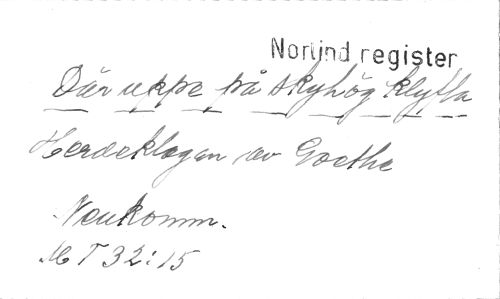 Norlind register
Där uppe på skyhög klyfta
Herdeklagan av Goethe
Neukomm.
M T 32:15